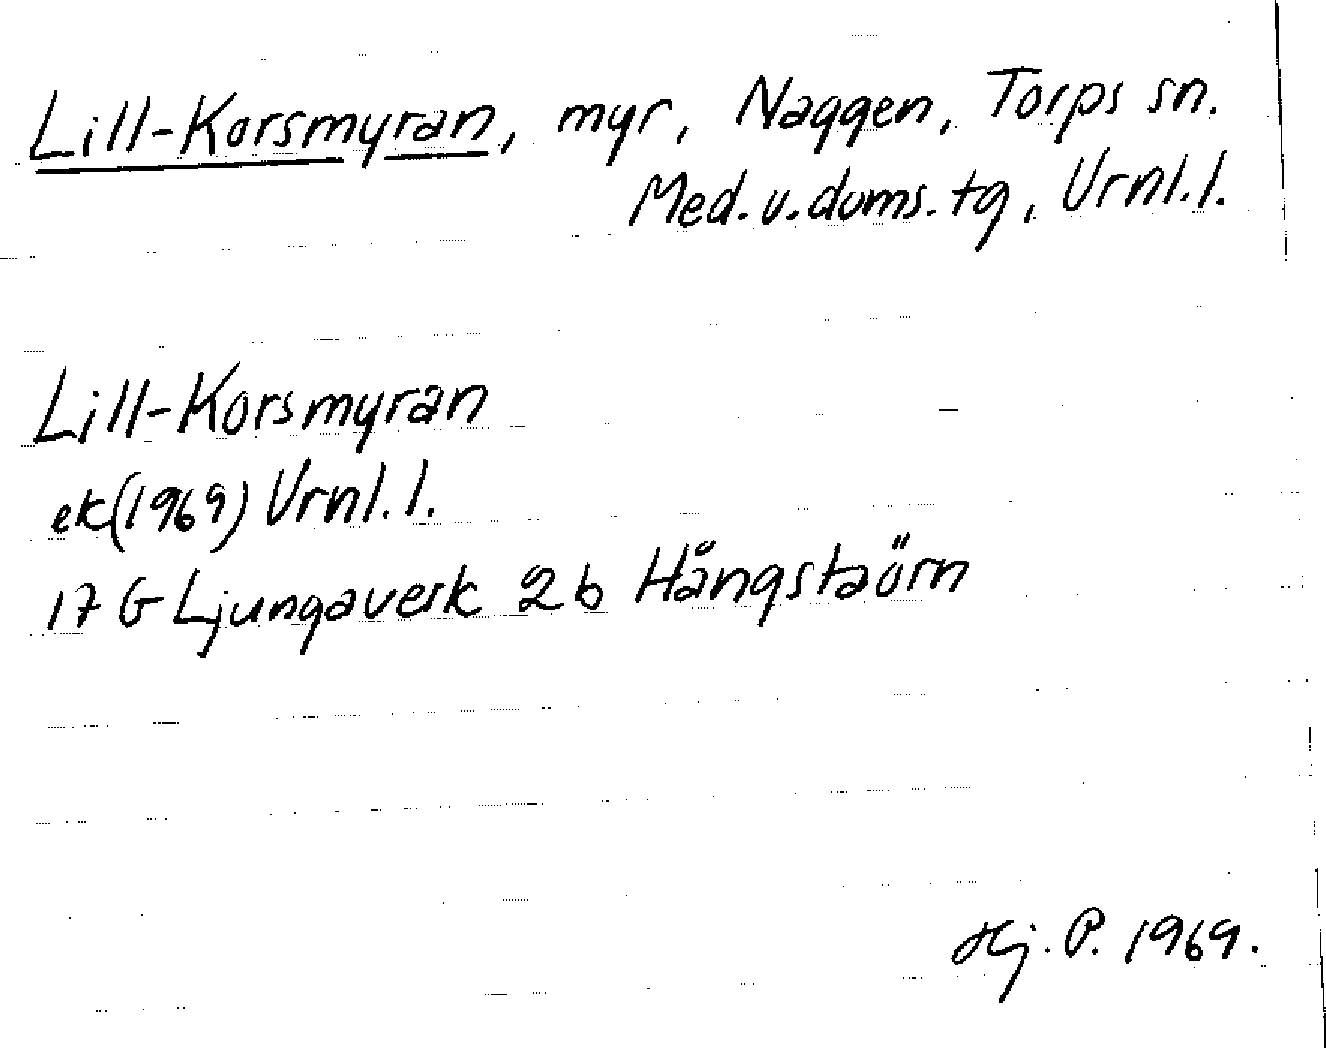 Lill-Korsmyran, myr, Naggen, Torps sn.
Med. v. doms. tg, Vrnl. l.
Lill-Korsmyran
ek (1969) Vrnl. l.
17 G Ljungaverk 2 b Hångstaörn
Hj. P. 1969.